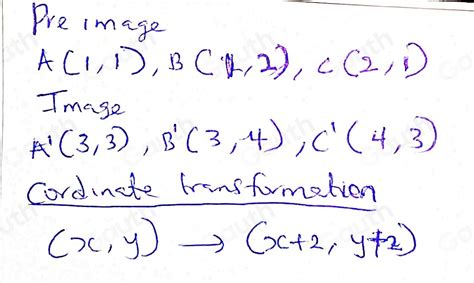 Pre image
A(1,1), B(1,2), C(2,1)
Image
A'(3,3), B'(3,4), C'(4,3)
Cordinate transformation
(x, y) → (x+2, y+2)